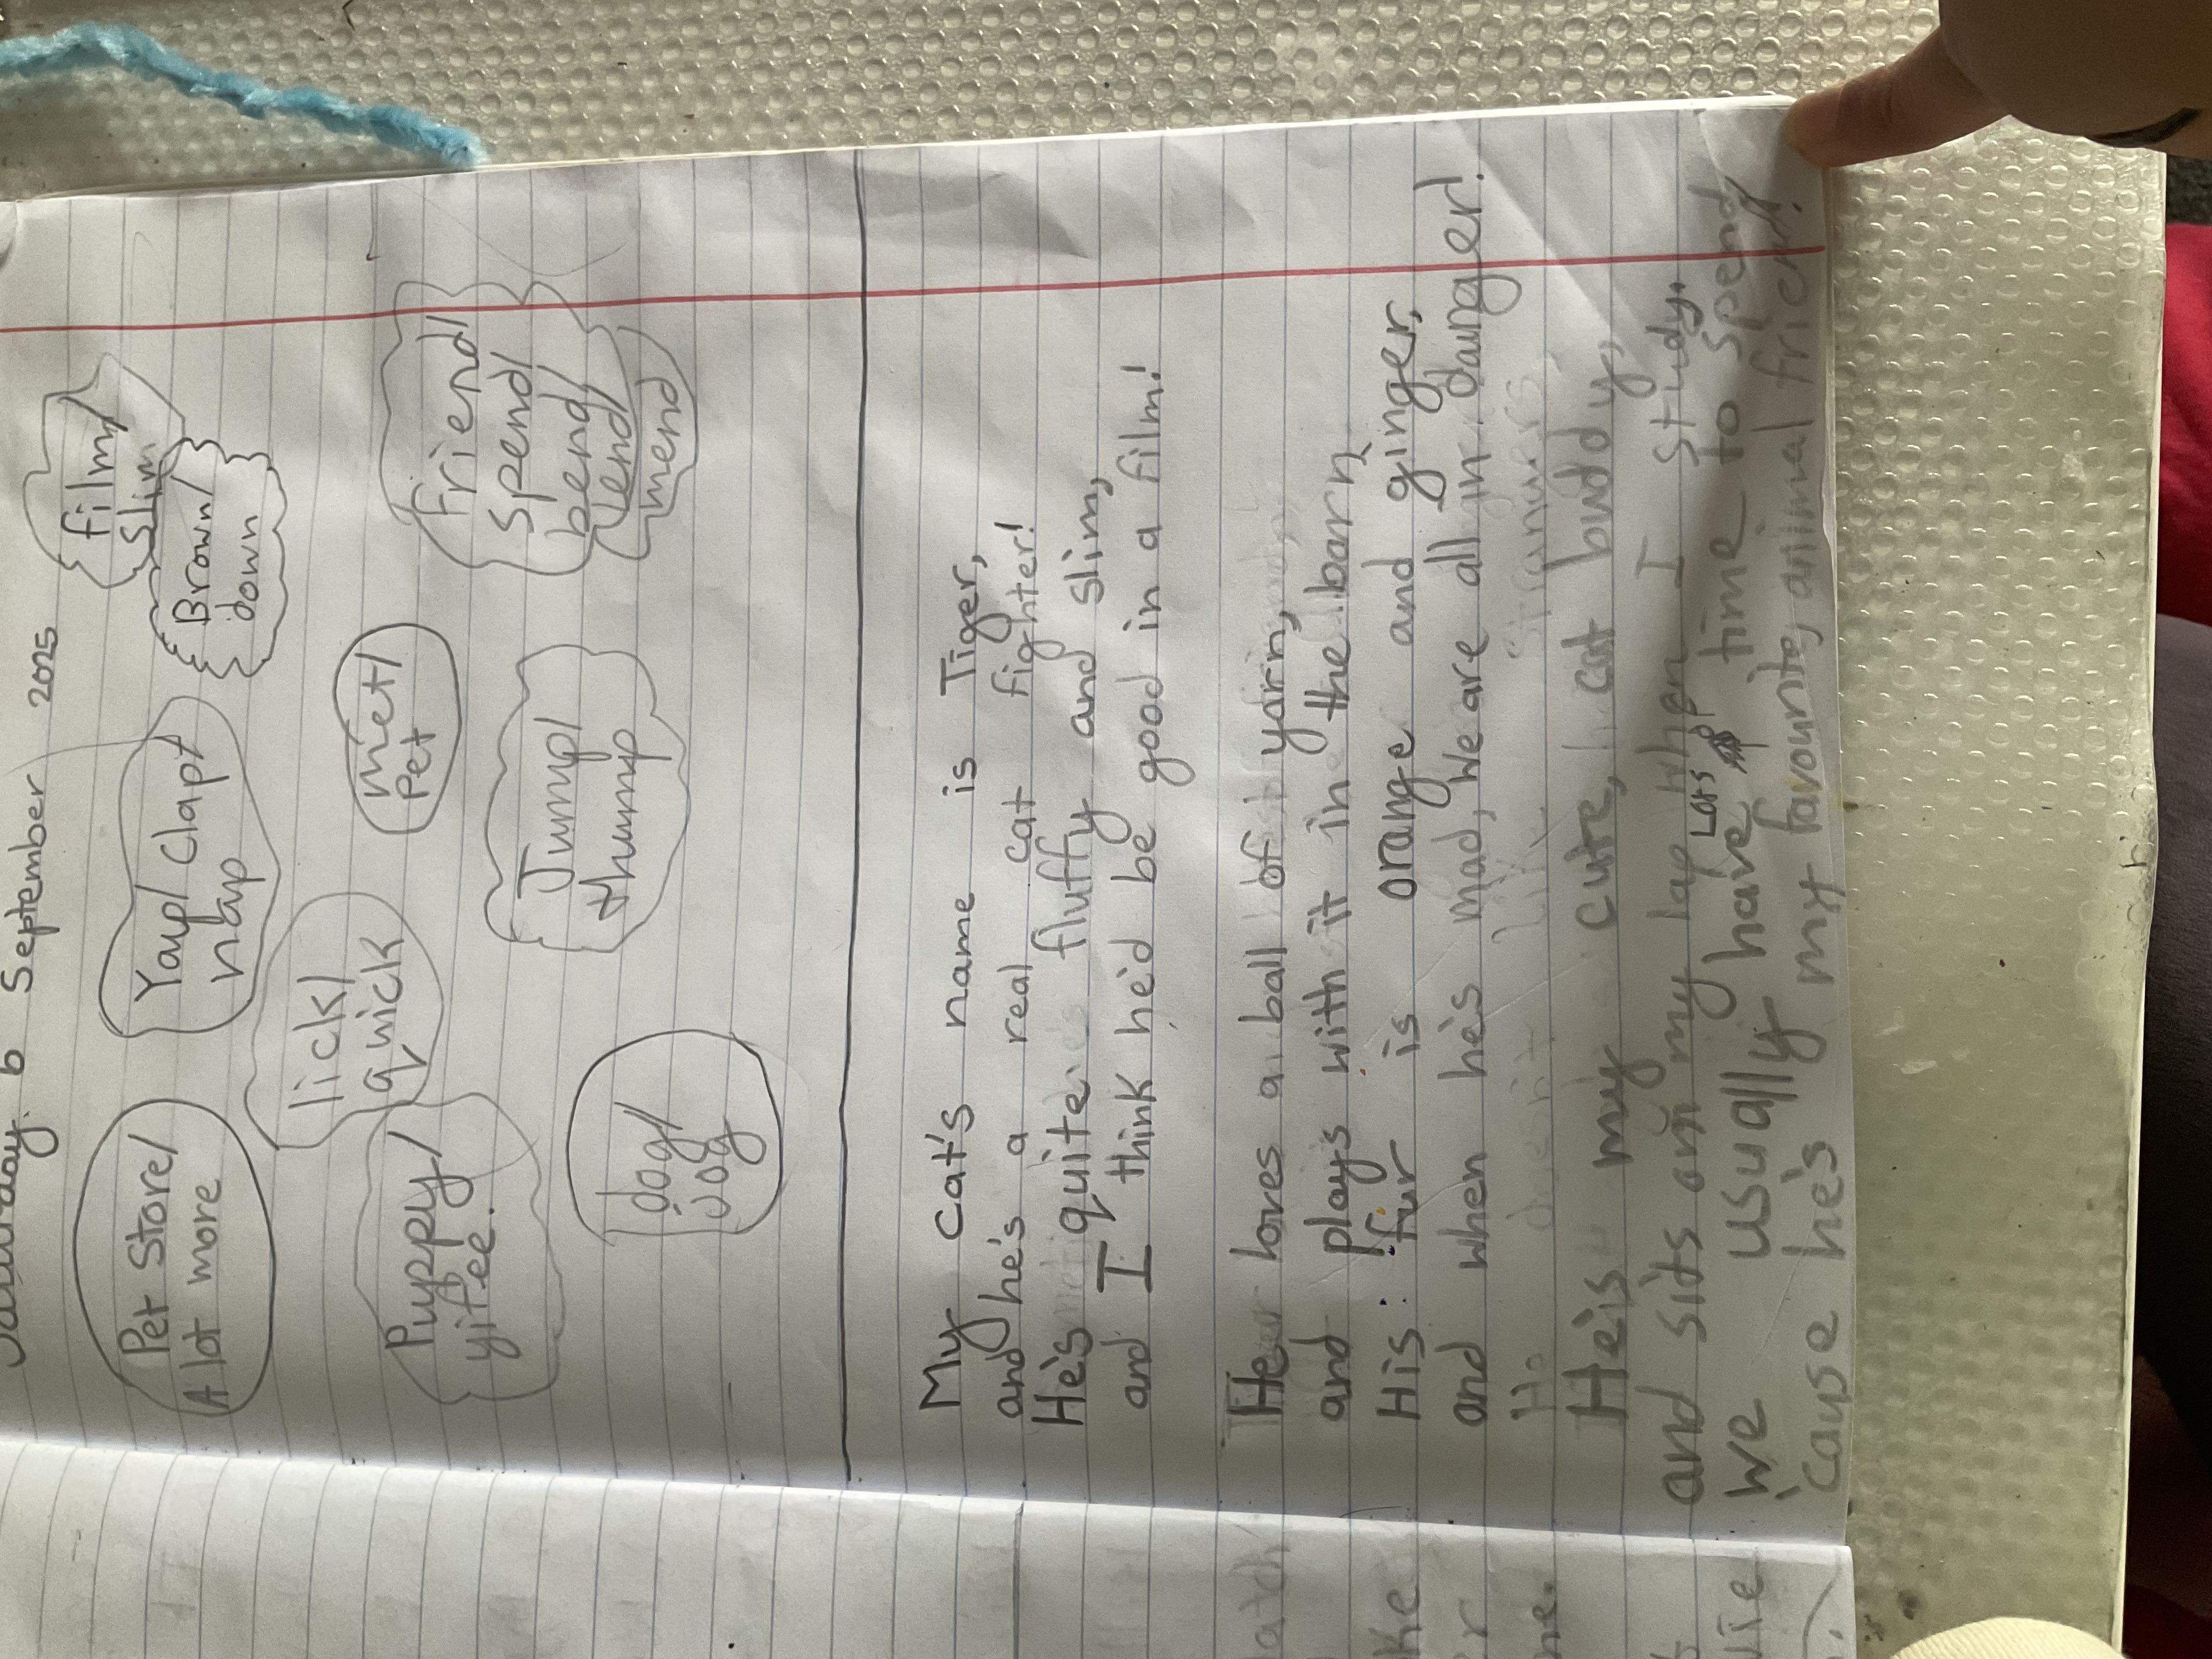 Saturday. 6 September 2025
Pet Store/
A lot more
Yap/ Clap/
nap
film/
slim
Brown/
down
lick/
quick
met/
pet
Puppy/
yipee.
Jump/
thump
friend/
spend/
bend/
lend/
mend
dog/
jog
My cat's name is Tiger,
and he's a real cat fighter!
He's quite fluffy and slim,
and I think he'd be good in a film!
He loves a ball of yarn,
and plays with it in the barn,
His fur is orange and ginger,
and when he's mad, we are all in danger!
He is my cute, cat buddy,
and sits on my lap when I study.
We usually have Lots of time to spend,
'cause he's my favourite, animal friend!
atch
ke
r
me.